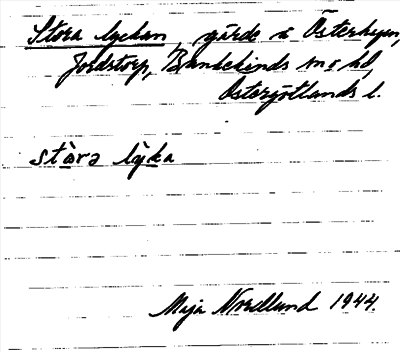 Stora lyckan, gärde i Österbyn,
Jordstorp, Bankekinds sn o hd,
Östergötlands l.
stòra lỳka
Maja Nordlund 1944.